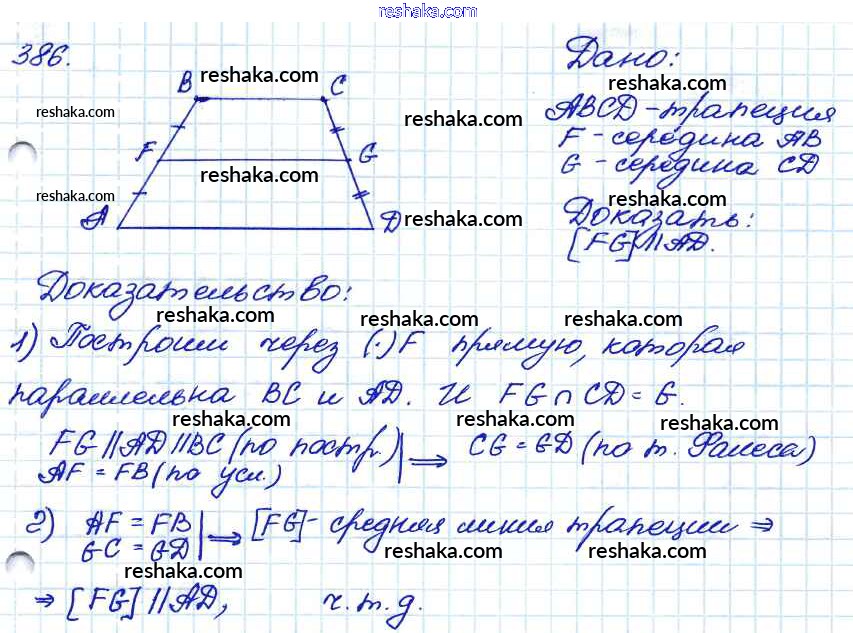 reshaka.com
386.
B reshaka.com C
reshaka.com reshaka.com
F G
reshaka.com reshaka.com
A D reshaka.com
Дано:
reshaka.com
ABCD – трапеция
F – середина AB
G – середина CD
reshaka.com
Доказать:
[FG] || AD.
Доказательство:
reshaka.com reshaka.com reshaka.com
1) Построим через (·) F прямую, которая
параллельна BC и AD. И FG ∩ CD = G.
reshaka.com reshaka.com reshaka.com
FG || AD || BC (по постр.) | ⟹ CG = GD (по т. Фалеса)
AF = FB (по усл.)
2) AF = FB | ⟹ [FG] – средняя линия трапеции ⇒
GC = GD
reshaka.com reshaka.com
reshaka.com
⇒ [FG] || AD, ч.т.д.